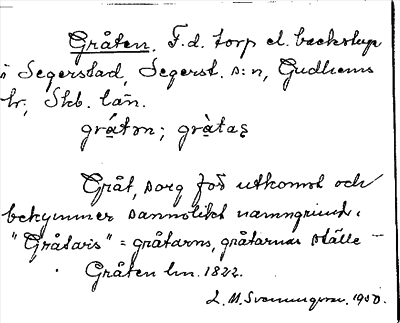 Gråten. F.d. torp el. backstuga
i Segerstad, Segerst. s:n, Gudhems
hr, Skb. län.
gråtən; gråtaş
Gråt, sorg för utkomst och
bekymmer sannolikt namngrund.
"Gråtars" = gråtarns, gråtarnas ställe –
Gråten lm. 1822.
L. M. Svenungsson. 1950.